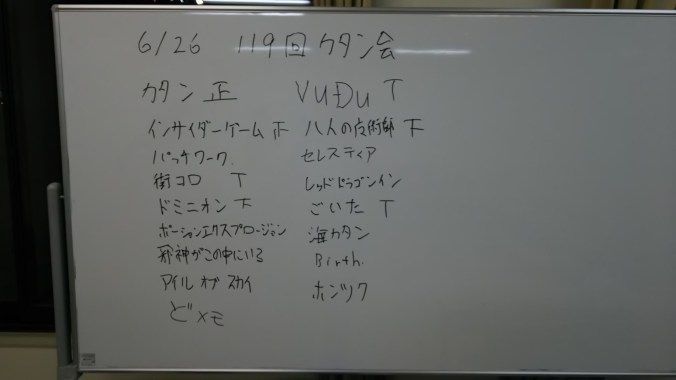 6/26 119回 カタン会
カタン 正
インサイダーゲーム 正
パッチワーク
街コロ T
ドミニオン 下
ポーションエクスプロージョン
邪神がこの中にいる
アイル オブ スカイ
どメモ
VUDU T
八人の技術師 下
セレスティア
レッドドラゴンイン
ごいた T
海カタン
Birth.
ホジツク